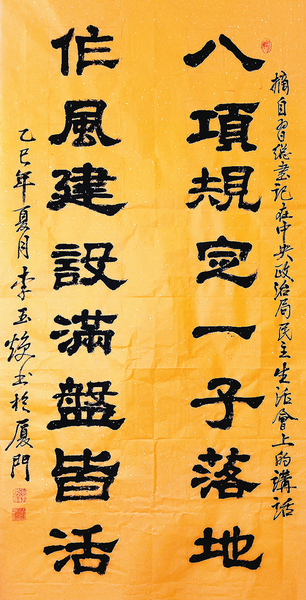 摘自習總書記在中央政治局民主生活會上的講話
八項規定一子落地
作風建設滿盤皆活
乙巳年夏月李玉焕书於厦門